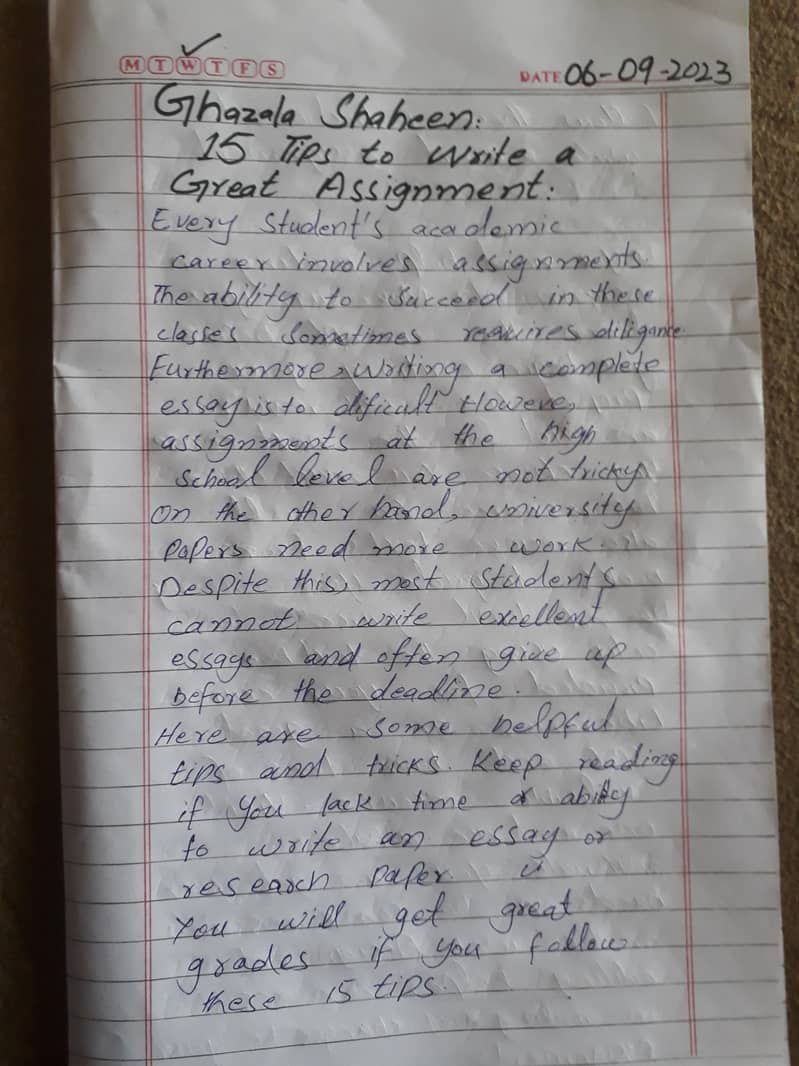 M T W T F S
DATE 06-09-2023
Ghazala Shaheen:
15 Tips to write a
Great Assignment:
Every Student's academic
career involves assignments.
The ability to succeed in these
classes Sometimes requires diligance.
Furthermore, writing a complete
essay is to dificult Howeve,
assignments at the high
School level are not tricky
On the other hand, university
Papers need more work.
Despite this, most Students
cannot write excellent
essays and often give up
before the deadline.
Here are some helpful
tips and tricks. Keep reading
if You lack time or ability
to write an essay or
research Paper
You will get great
grades if you follow
these 15 tips.